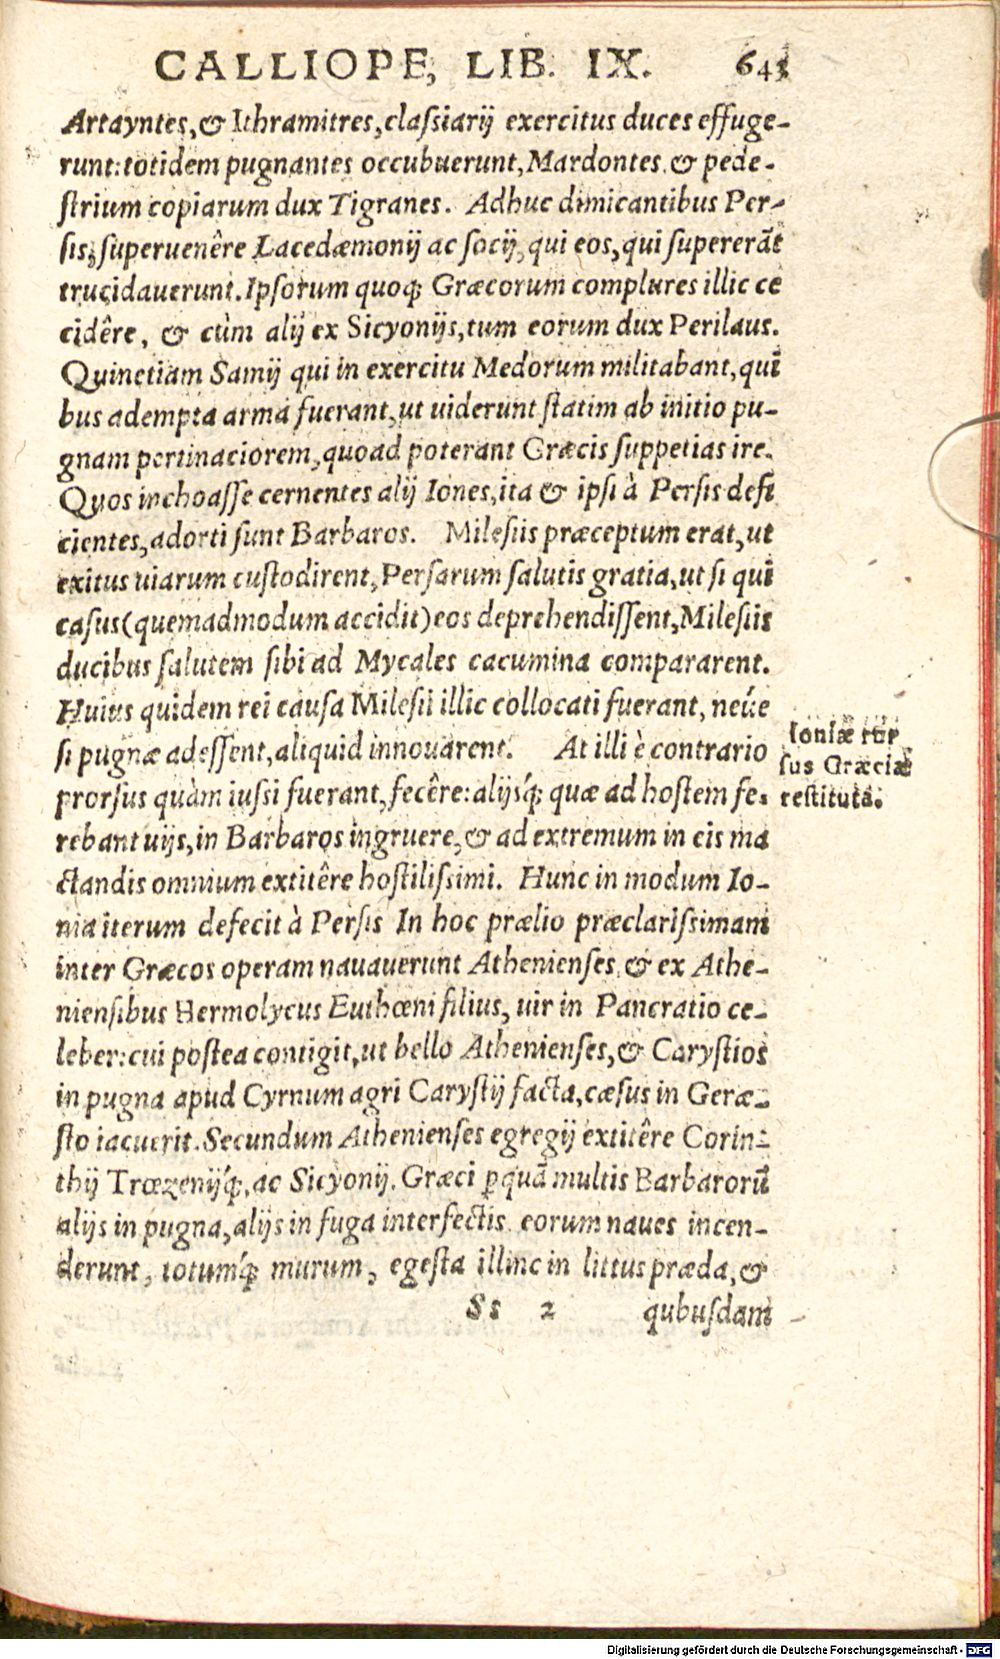 CALLIOPE, LIB. IX. 643
Artayntes, & Ithramitres, classiarij exercitus duces effuge-
runt: totidem pugnantes occubuerunt, Mardontes. & pede-
strium copiarum dux Tigranes. Adhuc dimicantibus Per-
sis, superuenêre Lacedæmonij ac socij, qui eos, qui supererāt
trucidauerunt. Ipsorum quoq; Græcorum complures illic ce
cidêre, & cùm alij ex Sicyonijs, tum eorum dux Perilaus.
Quinetiam Samij qui in exercitu Medorum militabant, qui
bus adempta arma fuerant, ut uiderunt statim ab initio pu-
gnam pertinaciorem, quoad poterant Græcis suppetias ire.
Quos inchoasse cernentes alij Iones, ita & ipsi à Persis defi
cientes, adorti sunt Barbaros. Milesiis præceptum erat, ut
exitus uiarum custodirent, Persarum salutis gratia, ut si qui
casus (quemadmodum accidit) eos deprehendissent, Milesiis
ducibus salutem sibi ad Mycales cacumina compararent.
Huius quidem rei causa Milesii illic collocati fuerant, neúe
si pugnæ adessent, aliquid innouarent. At illi è contrario
Ioniæ rur
sus Græciæ
restituta.
prorsus quàm iussi fuerant, fecêre: alijsq́; quæ ad hostem fe-
rebant uijs, in Barbaros ingruere, & ad extremum in eis ma
ctandis omnium extitêre hostilissimi. Hunc in modum Io-
nia iterum defecit à Persis In hoc prælio præclarissimam
inter Græcos operam nauauerunt Athenienses. & ex Athe-
niensibus Hermolycus Euthœni filius, uir in Pancratio ce-
leber: cui postea contigit, ut bello Athenienses, & Carystios
in pugna apud Cyrnum agri Carystij facta, cæsus in Geræ-
sto iacuerit. Secundum Athenienses egregij extitêre Corin-
thij Trœzenijq́;, ac Sicyonij. Græci ꝑquā multis Barbarorū
alijs in pugna, alijs in fuga interfectis. eorum naues incen-
derunt, totumq́; murum, egesta illinc in littus præda, &
Ss 2 qubusdam
Digitalisierung gefördert durch die Deutsche Forschungsgemeinschaft - DFG